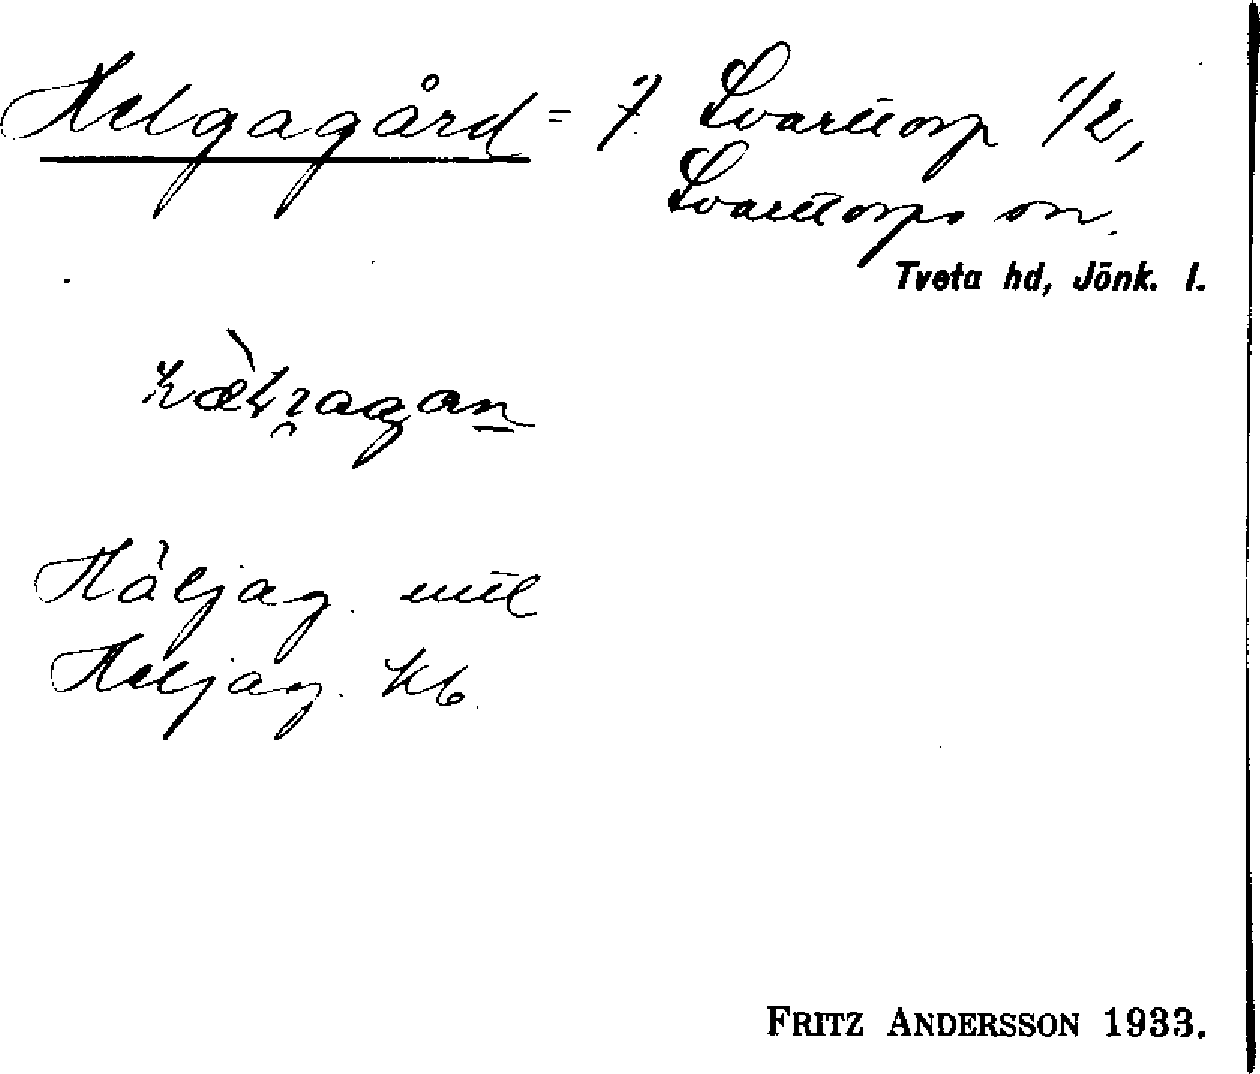 Helgagård = f. Svarttorp 1/2,
Svarttorps sn.
Tveta hd, Jönk. l.
Häljag. mtl
Heljag. kb.
FRITZ ANDERSSON 1933.